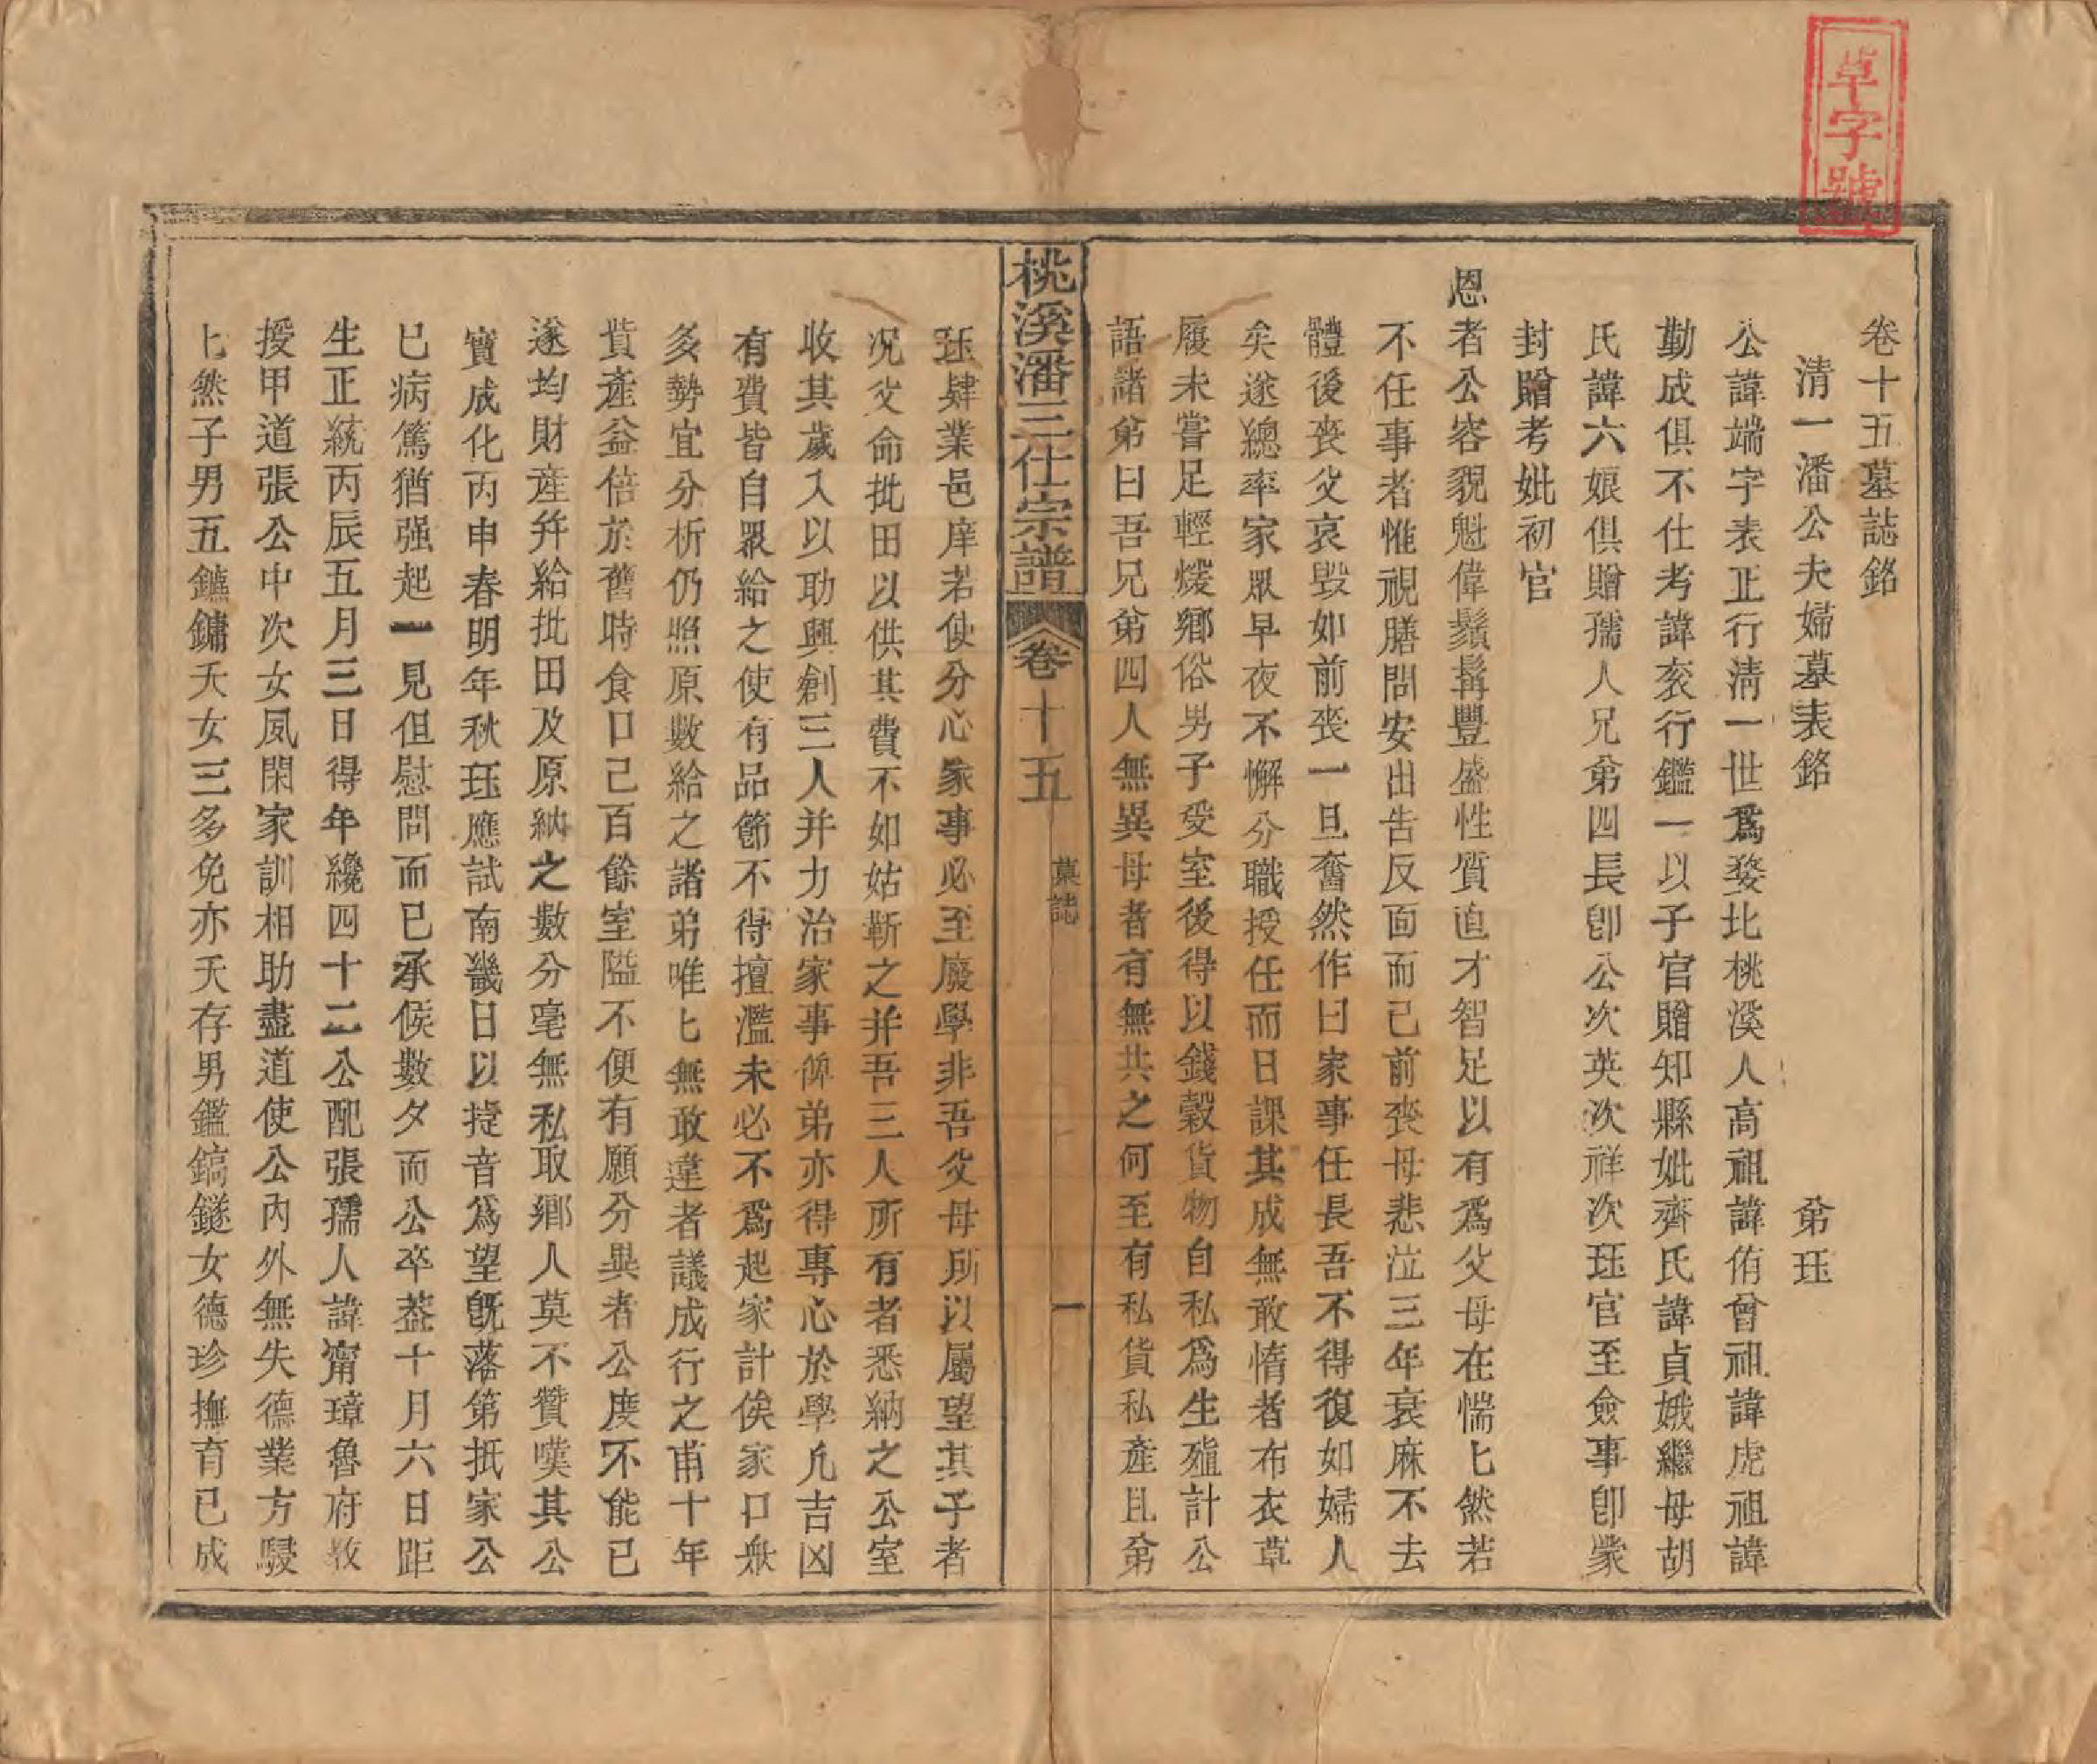 草字號
卷十五墓誌銘
清一潘公夫婦墓表銘　弟珏
公諱端字表正行淸一世爲婺北桃溪人高祖諱侑曾祖諱虎祖諱
勤成俱不仕考諱衮行鑑一以子官贈知縣妣齊氏諱貞娥繼母胡
氏諱六娘俱贈孺人兄弟四長卽公次英次祥次珏官至僉事卽蒙
封贈考妣初官
恩者公容貌魁偉鬚髯豐盛性質直才智足以有爲父母在惴匕然若
不任事者惟視膳問安出告反面而已前喪母悲泣三年衰麻不去
體後喪父哀毀如前喪一旦奮然作曰家事任長吾不得復如婦人
矣遂總率家眾早夜不懈分職授任而日課其成無敢惰者布衣草
履未嘗足輕煖鄉俗男子受室後得以錢穀貨物自私爲生殖計公
語諸弟曰吾兄弟四人無異母者有無共之何至有私貨私產且弟
桃溪潘三仕宗譜
卷十五
墓誌
一
珏肄業邑庠若使分心家事必至廢學非吾父母所以屬望其子者
况父命批田以供其費不如姑靳之并吾三人所有者悉納之公室
收其歲入以助興創三人并力治家事俾弟亦得專心於學凡吉凶
有費皆自眾給之使有品節不得擅濫未必不爲起家計俟家口衆
多勢宜分析仍照原數給之諸弟唯匕無敢違者議成行之甫十年
貲產益倍於舊時食口已百餘室隘不便有願分異者公度不能已
遂均財產幷給批田及原納之數分毫無私取鄉人莫不贊嘆其公
實成化丙申春明年秋珏應試南畿日以捷音爲望旣落第抵家公
已病篤猶强起一見但慰問而已承候數夕而公卒葢十月六日距
生正統丙辰五月三日得年纔四十二公配張孺人諱甯璋魯府教
授甲道張公中次女夙閑家訓相助盡道使公內外無失德業方駸
匕然子男五鑣鏞夭女三多免亦夭存男鑑鎬鐩女德珍撫育已成